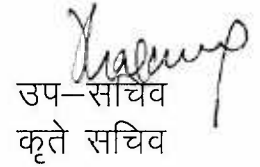 उप–सचिव
कृते सचिव